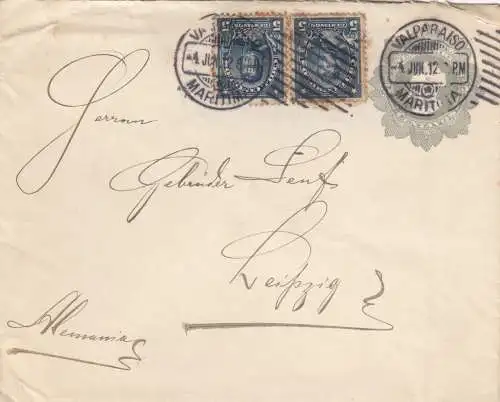 VALPARAISO
4 JUN. 12
MARITIMA
VALPARAISO
4 JUN. 12 PM
MARITIMA
5 5
Herren
Gebrüder Senf
Leipzig
Alemania